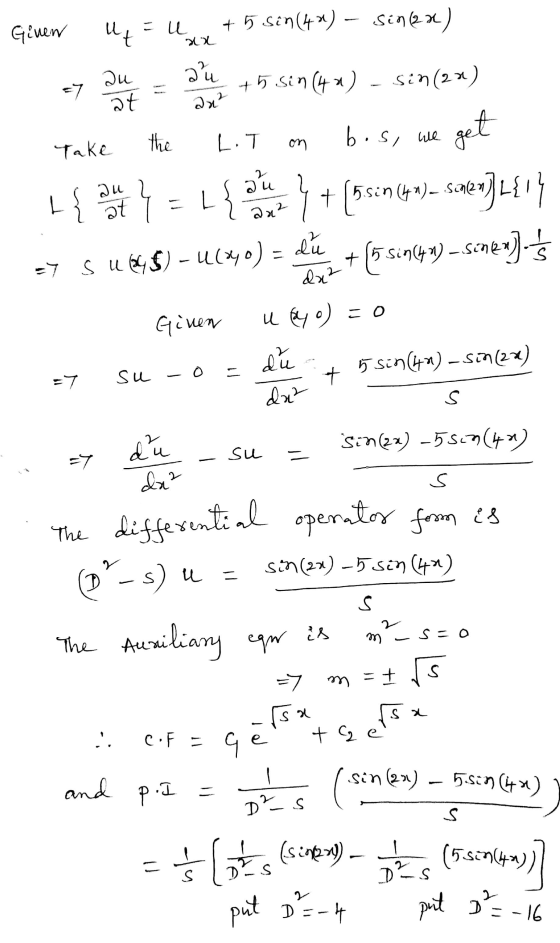 Given u_t = u_xx + 5 sin(4x) - sin(2x)
=> ∂u/∂t = ∂²u/∂x² + 5 sin(4x) - sin(2x)
Take the L.T on b.s, we get
L{∂u/∂t} = L{∂²u/∂x²} + [5 sin(4x) - sin(2x)] L{1}
=> s u(x,s) - u(x,0) = d²u/dx² + [5 sin(4x) - sin(2x)]·1/s
Given u(x,0) = 0
=> su - 0 = d²u/dx² + (5 sin(4x) - sin(2x))/s
=> d²u/dx² - su = (sin(2x) - 5 sin(4x))/s
The differential operator form is
(D² - s) u = (sin(2x) - 5 sin(4x))/s
The Auxiliary eqn is m² - s = 0
=> m = ± √s
∴ C.F = C₁ e^(-√s x) + C₂ e^(√s x)
and P.I = 1/(D² - s) ((sin(2x) - 5 sin(4x))/s)
= 1/s [1/(D² - s) (sin(2x)) - 1/(D² - s) (5 sin(4x))]
put D² = -4 put D² = -16